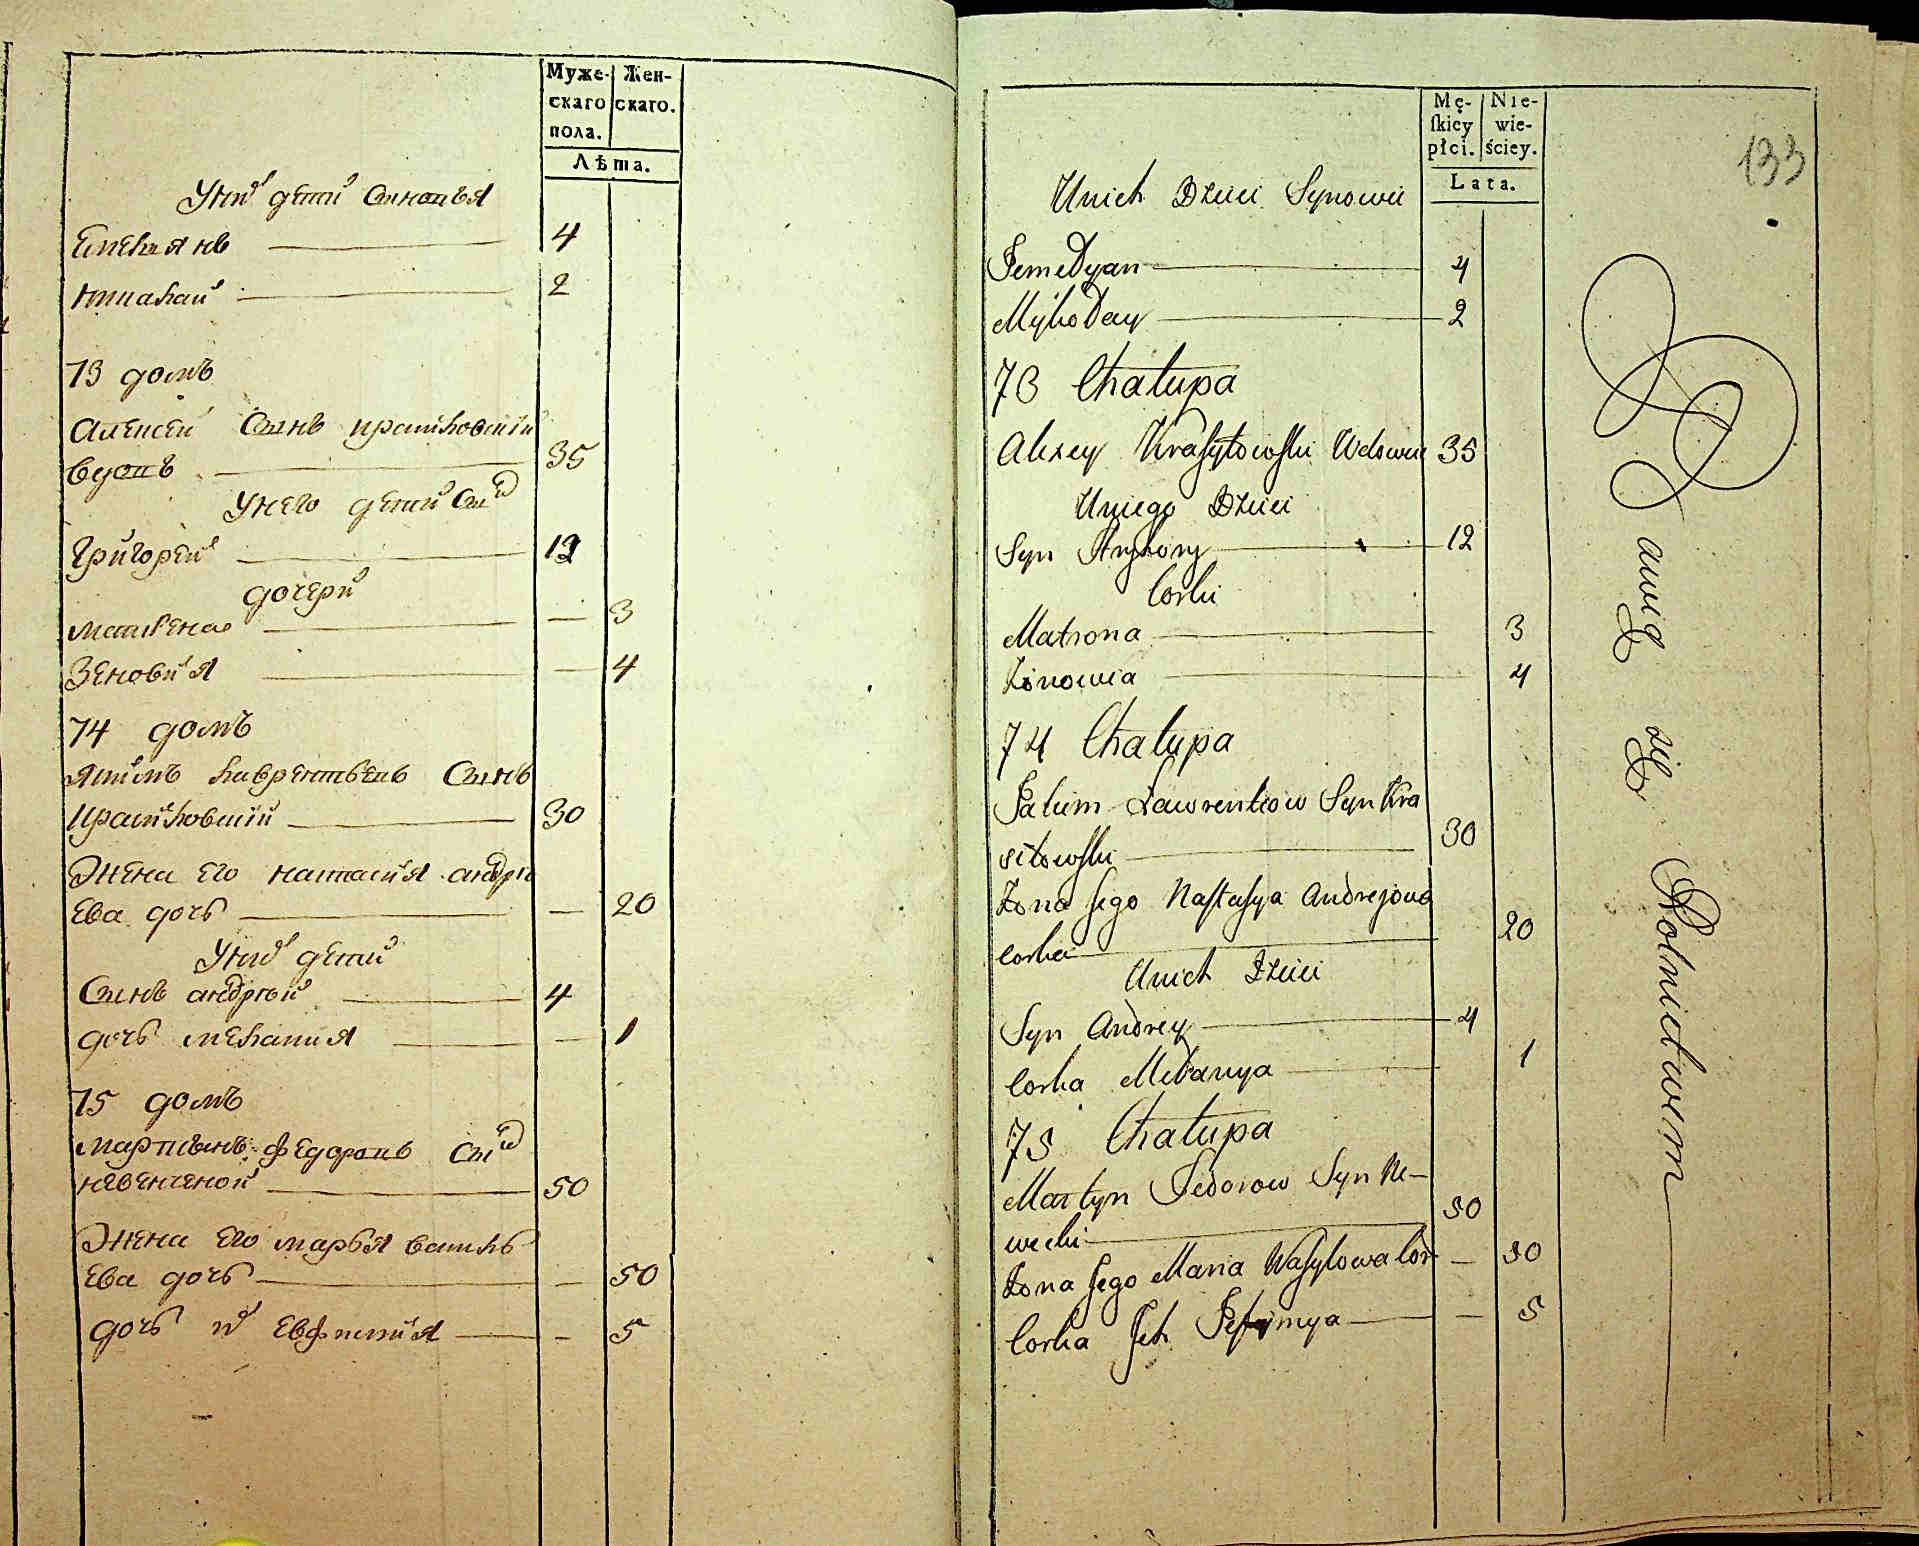 Муже-
скаго
пола.
Жен-
скаго.
Лѣта.
Уних детей Сыновья
Емельянъ 4
Николай 2
73 домъ
Алексей Сынъ красиловский
вдовъ 35
Унего детей Сын
Григорей 12
дочери
матрена — 3
Зеновия — 4
74 домъ
Якимъ лаврентьевъ Сынъ
красиловский 30
Жена его настасия андре
Ева дочь — 20
Уних детей
Сынъ андрей 4
дочь мелания — 1
75 домъ
мартынъ федоровъ Сын
50
Жена его марья василь
Ева дочь — 50
дочь их Евфимия — 5
Mę-
ſkiey
płci.
Nie-
wie-
ściey.
Lata.
133
Unich Dzieci Synowie
Jemelyan 4
Mykołay 2
73 Chałupa
Alexey Krasyłowſki Wdowiec 35
Uniego Dzieci
Syn Hryhory 12
Corki
Matrona 3
Zinowia 4
74 Chałupa
Jakim Ławrentiow Syn Kra
siłowſki 30
Żona Jego Naſtaſya Andrejowa
corka 20
Unich Dzieci
Syn Andrey 4
Corka Mełanya 1
75 Chałupa
Martyn Fedorow Syn Ne-
50
Żona Jego Maria Waſylowa Cor — 50
Corka Jch Jefimya — 5
Bawią się Rolnictwem